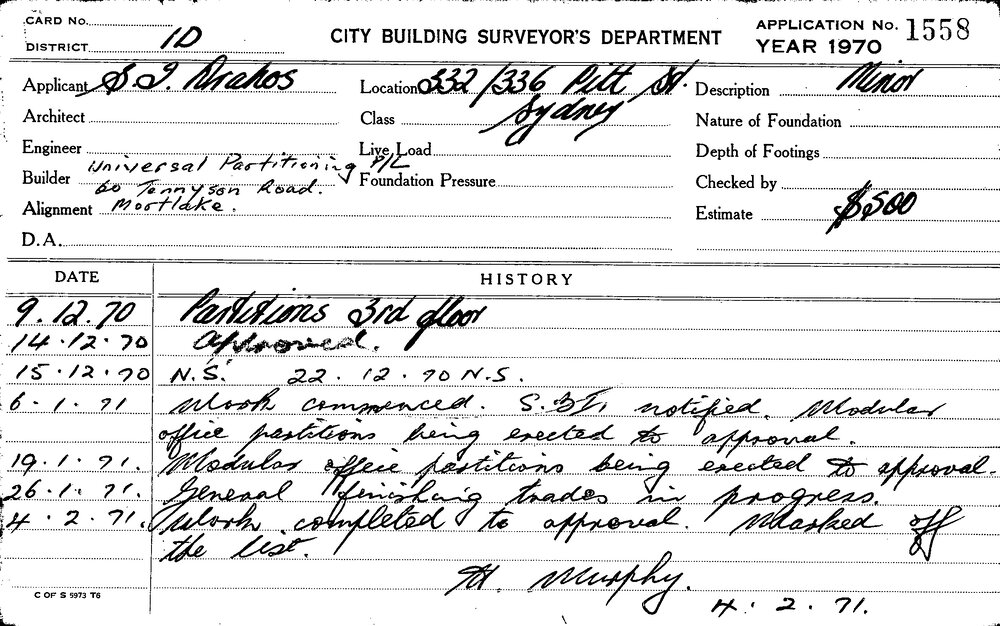 CARD No.
DISTRICT 1D
CITY BUILDING SURVEYOR'S DEPARTMENT
APPLICATION No. 1558
YEAR 1970
Applicant S. J. Drakos
Location 332/336 Pitt St.
Description Minor
Architect
Class Sydney
Nature of Foundation
Engineer
Live Load
Depth of Footings
Builder Universal Partitioning P/L
60 Tennyson Road.
Mortlake.
Foundation Pressure
Checked by
Alignment
Estimate $500
D.A.
DATE HISTORY
9.12.70 Partitions 3rd floor
14.12.70 Approved.
15.12.70 N.S. 22.12.70 N.S.
6.1.71 Work commenced. S.B.I. notified. Modular
office partitions being erected to approval.
19.1.71. Modular office partitions being erected to approval.
26.1.71. General finishing trades in progress.
4.2.71. Work completed to approval. Marked off
the list.
H. Murphy.
4.2.71.
C OF S 5973 T6